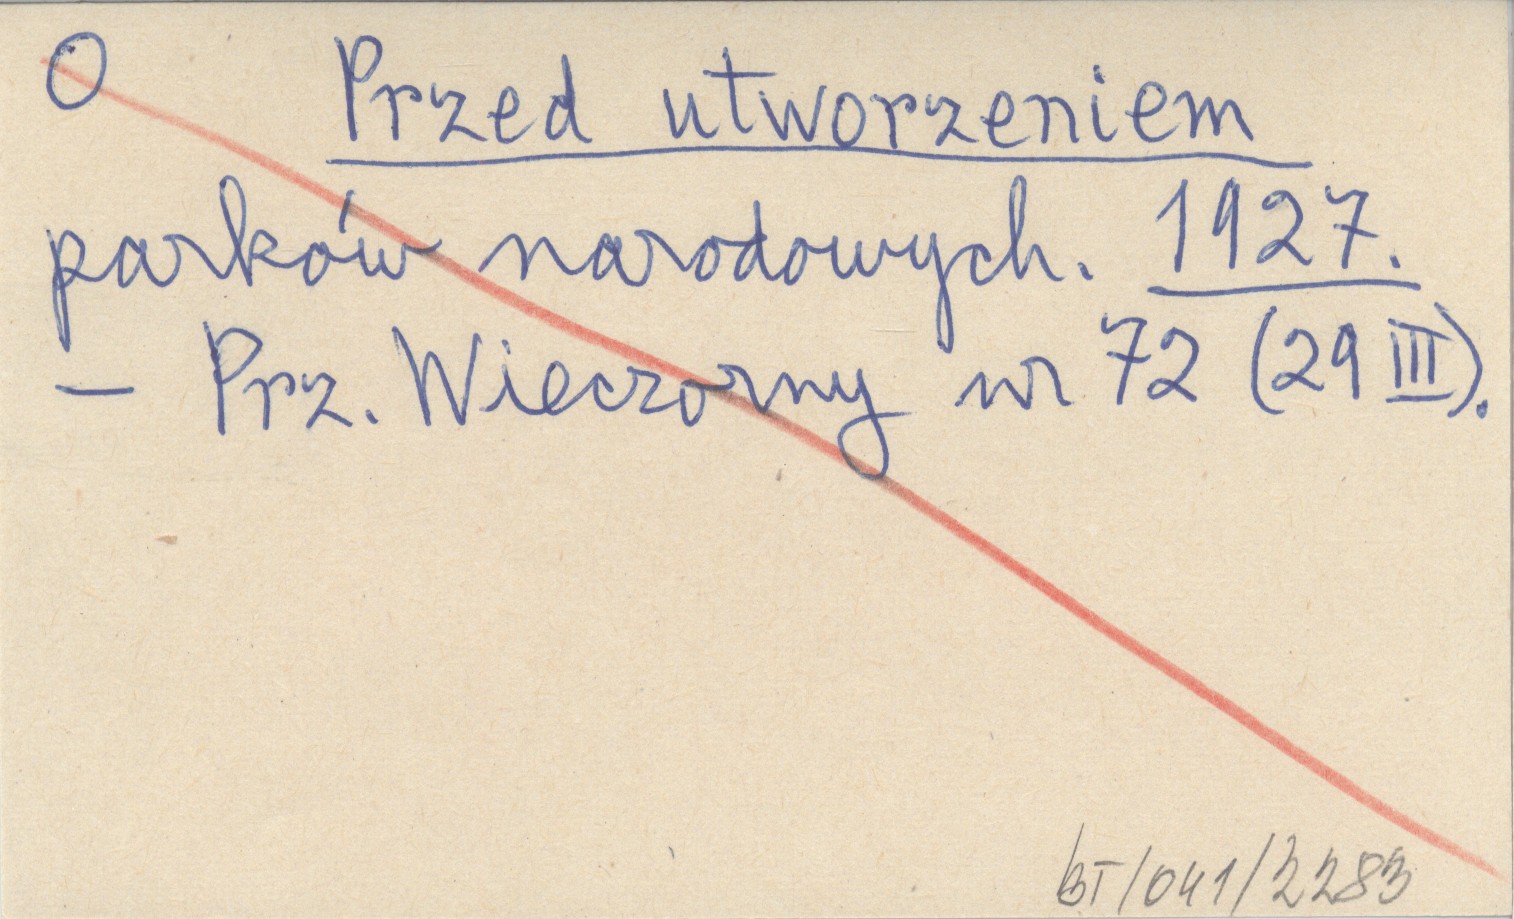 O Przed utworzeniem
parków narodowych. 1927.
– Prz. Wieczorny nr 72 (29 III).
BT/041/2283